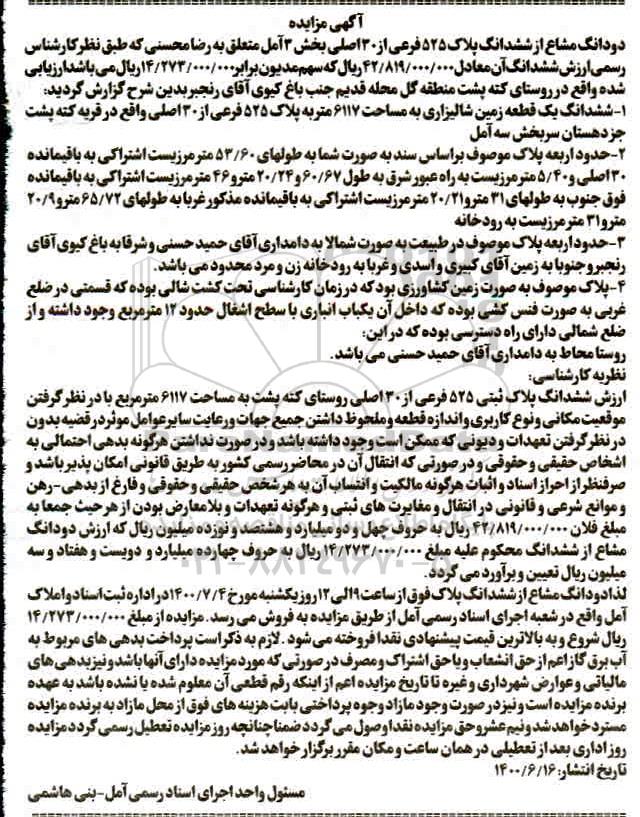 آگهی مزایده
دودانگ مشاع از ششدانگ پلاک ۵۲۵ فرعی از ۳۰ اصلی بخش ۳ آمل متعلق به رضا محسنی که طبق نظر کارشناس
رسمی ارزش ششدانگ آن معادل ۴۲/۸۱۹/۰۰۰/۰۰۰ ریال که سهم مدیون برابر ۱۴/۲۷۳/۰۰۰/۰۰۰ ریال می باشد ارزیابی
شده واقع در روستای کته پشت منطقه گل محله قدیم جنب باغ کیوی آقای رنجبر بدین شرح گزارش گردید:
۱-ششدانگ یک قطعه زمین شالیزاری به مساحت ۶۱۱۷ متر به پلاک ۵۲۵ فرعی از ۳۰ اصلی واقع در قریه کته پشت
جز دهستان سربخش سه آمل
۲-حدود اربعه پلاک موصوف بر اساس سند به صورت شما به طولهای ۵۳/۶۰ متر مرزیست اشتراکی به باقیمانده
۳۰ اصلی و ۵/۴۰ متر مرزیست به راه عبور شرق به طول ۶۰/۶۷ و ۲۰/۲۴ متر و ۴۶ متر مرزیست اشتراکی به باقیمانده
فوق جنوب به طولهای ۳۱ متر و ۲۰/۲۱ متر مرزیست اشتراکی به باقیمانده مذکور غربا به طولهای ۶۵/۷۲ متر و ۲۰/۹
متر و ۳۱ متر مرزیست به رودخانه
۳-حدود اربعه پلاک موصوف در طبیعت به صورت شمالا به دامداری آقای حمید حسنی و شرقا به باغ کیوی آقای
رنجبر و جنوبا به زمین آقای کبیری و اسدی و غربا به رودخانه زن و مرد محدود می باشد.
۴-پلاک موصوف به صورت زمین کشاورزی بود که در زمان کارشناسی تحت کشت شالی بوده که قسمتی در ضلع
غربی به صورت فنس کشی بوده که داخل آن یکباب انباری با سطح اشغال حدود ۱۲ مترمربع وجود داشته و از
ضلع شمالی دارای راه دسترسی بوده که در این:
روستا محاط به دامداری آقای حمید حسنی می باشد.
نظریه کارشناسی:
ارزش ششدانگ پلاک ثبتی ۵۲۵ فرعی از ۳۰ اصلی روستای کته پشت به مساحت ۶۱۱۷ مترمربع با در نظر گرفتن
موقعیت مکانی و نوع کاربری و اندازه قطعه و ملحوظ داشتن جمیع جهات و رعایت سایر عوامل موثر در قضیه بدون
در نظر گرفتن تعهدات و دیونی که ممکن است وجود داشته باشد و در صورت نداشتن هرگونه بدهی احتمالی به
اشخاص حقیقی و حقوقی و در صورتی که انتقال آن در محاضر رسمی کشور به طریق قانونی امکان پذیر باشد و
صرفنظر از احراز اسناد و اثبات هرگونه مالکیت و انتساب آن به هر شخص حقیقی و حقوقی و فارغ از بدهی-رهن
و موانع شرعی و قانونی در انتقال و مغایرت های ثبتی و هرگونه تعهدات و بلامعارض بودن از هر حیث جمعا به
مبلغ فلان ۴۲/۸۱۹/۰۰۰/۰۰۰ ریال به حروف چهل و دو میلیارد و هشتصد و نوزده میلیون ریال که ارزش دودانگ
مشاع از ششدانگ محکوم علیه مبلغ ۱۴/۲۷۳/۰۰۰/۰۰۰ ریال به حروف چهارده میلیارد و دویست و هفتاد و سه
میلیون ریال تعیین و برآورد می گردد.
لذا دودانگ مشاع از ششدانگ پلاک فوق از ساعت ۹ الی ۱۲ روز یکشنبه مورخ ۱۴۰۰/۷/۴ در اداره ثبت اسناد و املاک
آمل واقع در شعبه اجرای اسناد رسمی آمل از طریق مزایده به فروش می رسد. مزایده از مبلغ ۱۴/۲۷۳/۰۰۰/۰۰۰
ریال شروع و به بالاترین قیمت پیشنهادی نقدا فروخته می شود. لازم به ذکر است پرداخت بدهی های مربوط به
آب برق گاز اعم از حق انشعاب و یا حق اشتراک و مصرف در صورتی که مورد مزایده دارای آنها باشد و نیز بدهی های
مالیاتی و عوارض شهرداری و غیره تا تاریخ مزایده اعم از اینکه رقم قطعی آن معلوم شده یا نشده باشد به عهده
برنده مزایده است و نیز در صورت وجود مازاد وجوه پرداختی بابت هزینه های فوق از محل مازاد به برنده مزایده
مسترد خواهد شد و نیم عشر و حق مزایده نقدا وصول می گردد ضمنا چنانچه روز مزایده تعطیل رسمی گردد مزایده
روز اداری بعد از تعطیلی در همان ساعت و مکان مقرر برگزار خواهد شد.
تاریخ انتشار: ۱۴۰۰/۶/۱۶
مسئول واحد اجرای اسناد رسمی آمل-بنی هاشمی